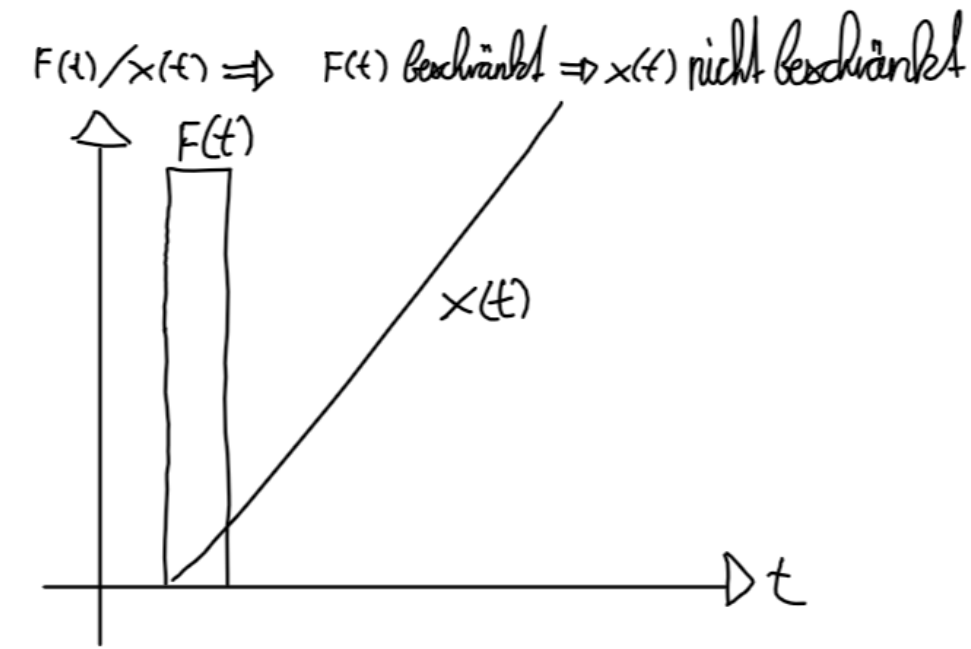 F(t)/x(t) ⇒ F(t) beschränkt ⇒ x(t) nicht beschränkt
F(t)
x(t)
t